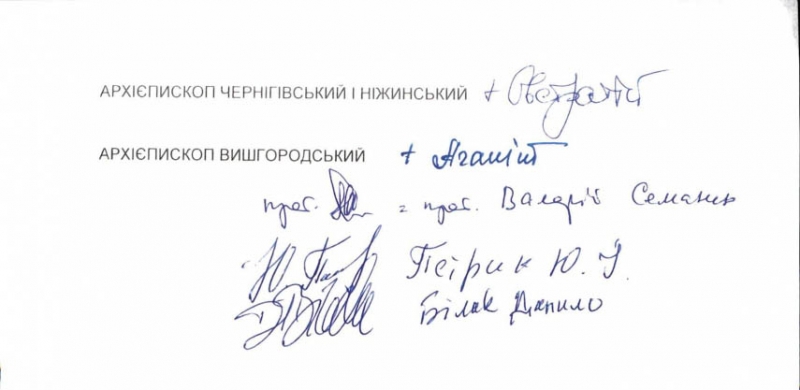 АРХІЄПИСКОП ЧЕРНІГІВСЬКИЙ І НІЖИНСЬКИЙ + Євстратій
АРХІЄПИСКОП ВИШГОРОДСЬКИЙ + Агапіт
прот. = прот. Валерій Семанцо
Ю Петр Петрик Ю. І.
Білак Данило